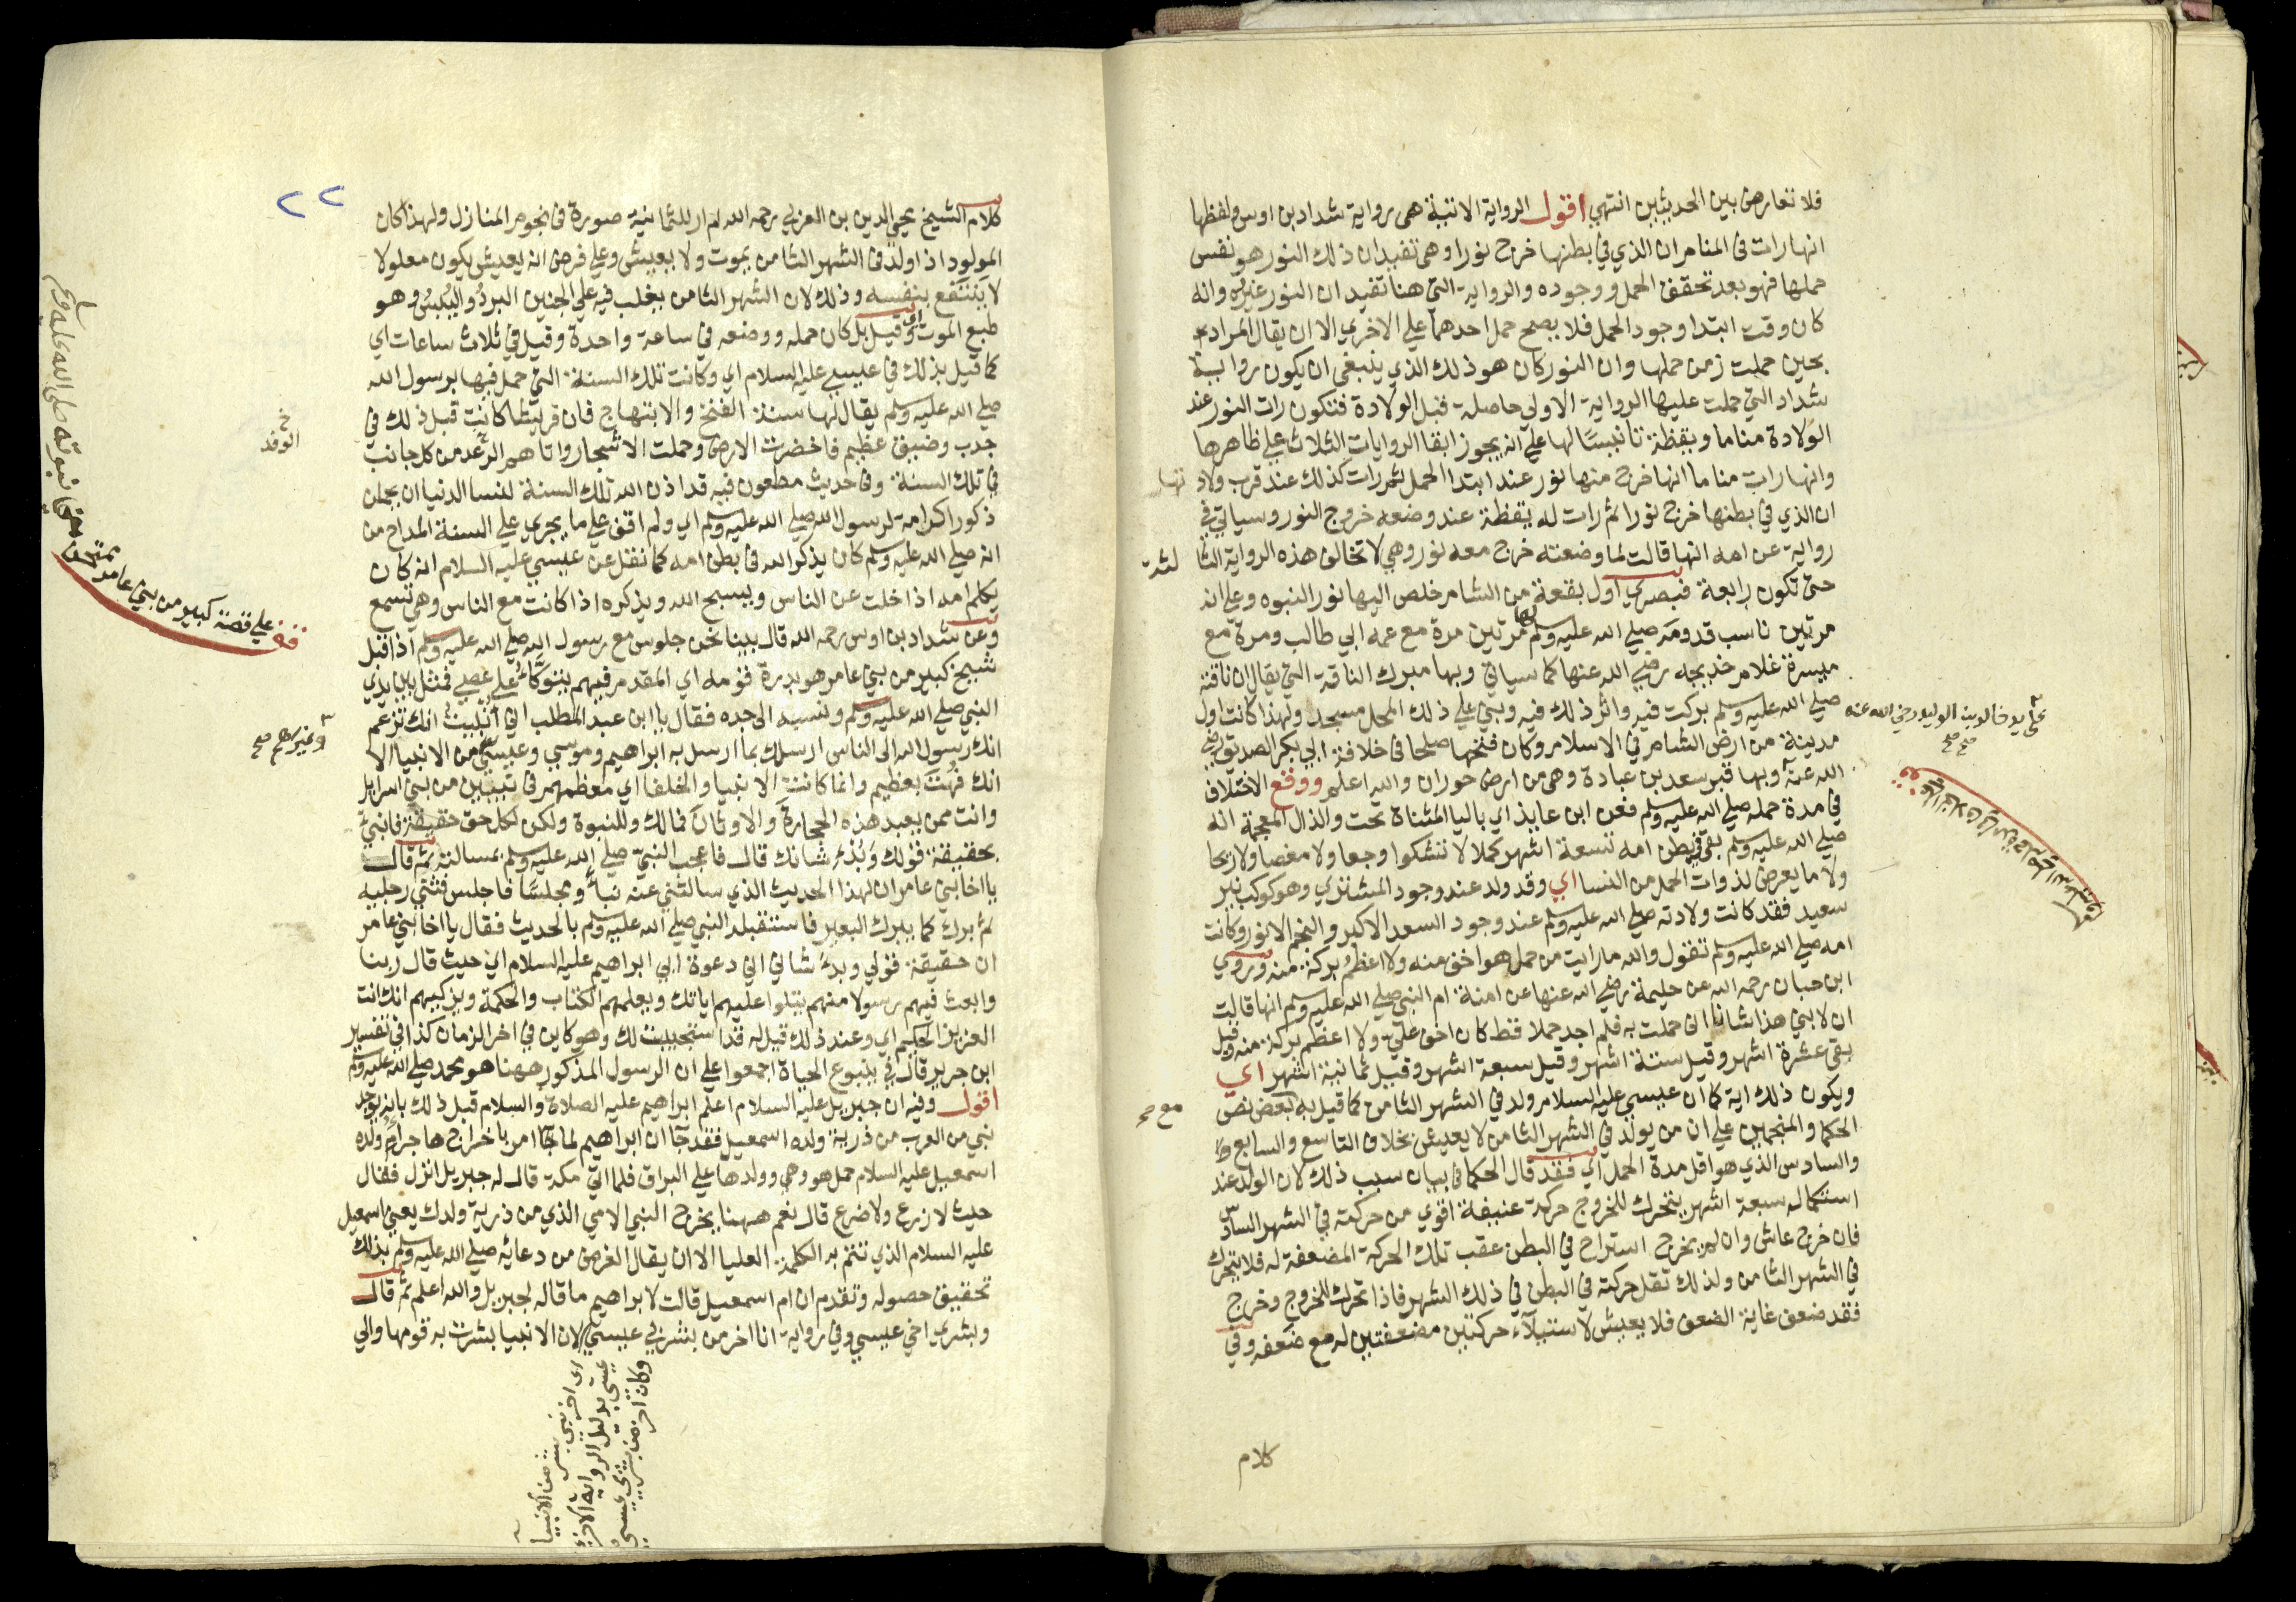 فلا تعارض بين الحديثين انتهي اقول الرواية الاتية هى رواية شداد بن اوس ولفظها
انها رات فى المنام ان الذي في بطنها خرج نورا وهى تفيد ان ذلك النور هو نفس
حملها فهو بعد تحقق الحمل ووجوده والرواية التى هنا تفيد ان النور غيره وانه
كان وقت ابتدا وجود الحمل فلا يصح حمل احدهما علي الاخري الا ان يقال المراد
بحين حملت زمن حملها وان النور كان هو ذلك الذي ينبغى ان يكون رواية
شداد التي حملت عليها الرواية الاولي حاصلة قبل الولادة فتكون رات النور عند
الولادة مناما ويقظة تانيسًا لها علي انه يجوز ابقا الروايات الثلاث علي ظاهرها
وانها رات مناما انها خرج منها نور عند ابتدا الحمل ثم رات كذلك عند قرب ولادتها
ان الذي في بطنها خرج نورا ثم رات له يقظة عند وضعه خروج النور وسياتي في
رواية عن امه انها قالت لما وضعته خرج معه نور وهي لا تخالف هذه الرواية الثالثة
حتى تكون رابعة فبصري اول بقعة من الشام خلص اليها نور النبوه وعلي انه
مرتين ناسب قدومه صلي الله عليه وسلم لها مرتين مرة مع عمه ابي طالب ومرة مع
ميسرة غلام خديجه رضي الله عنها كما سياتى وبها مبرك الناقة التي يقال ان ناقته
صلي الله عليه وسلم بركت فيه واثر ذلك فيه وبني علي ذلك المحل مسجد ولهذا كانت اول
مدينة من ارض الشام في الاسلام وكان فتحها صلحا فى خلافة ابي بكر الصديق رضي
الله عنه وبها قبر سعد بن عبادة وهى من ارض حوران والله اعلم ووقع الاختلاف
في مدة حمله صلي الله عليه وسلم فعن ابن عايذ اي باليا المثناة تحت والذال المعجمة انه
صلي الله عليه وسلم بقى في بطن امه تسعة اشهر كملا لا تشكوا وجعا ولا مغصا ولا ريحا
ولا ما يعرض لذوات الحمل من النسا اي وقد ولد عند وجود المشتري وهو كوكب نير
سعيد فقد كانت ولادته صلي الله عليه وسلم عند وجود السعد الاكبر والنجم الانور وكانت
امه صلي الله عليه وسلم تقول والله ما رايت من حمل هو اخف منه ولا اعظم بركة منه وروي
ابن حبان رحمه الله عن حليمة رضي الله عنها عن امنة ام النبي صلي الله عليه وسلم انها قالت
ان لابني هذا شانا انى حملت به فلم اجد حملا قط كان اخف علي ولا اعظم بركة منه وقيل
بقى عشرة اشهر وقيل ستة اشهر وقيل سبعة اشهر وقيل ثمانية اشهر اي
ويكون ذلك اية كما ان عيسي عليه السلام ولد في الشهر الثامن كما قيل به مع نص
الحكما والمنجمين علي ان من يولد في الشهر الثامن لا يعيش بخلاف التاسع والسابع
والسادس الذي هو اقل مدة الحمل اي فقد قال الحكما فى بيان سبب ذلك لان الولد عند
استكماله سبعة اشهر يتحرك للخروج حركة عنيفة اقوي من حركته في الشهر السادس
فان خرج عاش وان لم يخرج استراح في البطن عقب تلك الحركة المضعفة له فلا يتحرك
في الشهر الثامن ولذلك تقل حركته في البطن في ذلك الشهر فاذا تحرك للخروج وخرج
فقد ضعف غاية الضعف فلا يعيش لاستيلاء حركتين مضعفتين له مع ضعفه وفي
كلام
علي يد خالد بن الوليد رضي الله عنه
صح صح
مع صح
٢٢
كلام الشيخ محيي الدين بن العربي رحمه الله لم ار للثمانية صورة فى نجوم المنازل ولهذا كان
المولود اذا ولد فى الشهر الثامن يموت ولا يعيش وعلي فرض انه يعيش يكون معلولا
لا ينتفع بنفسه وذلك لان الشهر الثامن يغلب فيه علي الجنين البرد واليبس وهو
طبع الموت اي وقيل بل كان حمله ووضعه في ساعة واحدة وقيل في ثلاث ساعات اي
كما قيل بذلك في عيسي عليه السلام اي وكانت تلك السنة التي حمل فيها برسول الله
صلي الله عليه وسلم يقال لها سنة الفتح والابتهاج فان قريشا كانت قبل ذلك في
جدب وضيق عظيم فاخضرت الارض وحملت الاشجار واتاهم الرغد من كل جانب
في تلك السنة وفى حديث مطعون فيه قد اذن الله تلك السنة لنسا الدنيا ان يحملن
ذكورا كرامة لرسول الله صلي الله عليه وسلم اي ولم اقف علي ما يجري علي السنة المداح من
انه صلي الله عليه وسلم كان يذكر الله فى بطن امه كما نقل عن عيسي عليه السلام انه كان
يكلم امه اذا خلت عن الناس ويسبح الله ويذكره اذا كانت مع الناس وهي تسمع
وعن شداد بن اوس رحمه الله قال بينا نحن جلوس مع رسول الله صلي الله عليه وسلم اذ اقبل
شيخ كبير من بني عامر هو مدرة قومه اي المقدم فيهم يتوكأ علي عصي فمثل بين يدي
النبي صلي الله عليه وسلم ونسبه الى جده فقال يا ابن عبد المطلب اني أنبئت انك تزعم
انك رسول الله الى الناس ارسلك بما ارسل به ابراهيم وموسي وعيسي من الانبيا الا
انك فهت بعظيم وانما كانت الانبيا والخلفا اي معظمهم فى بيتين من بني اسرايل
وانت ممن يعبد هذه الحجارة والاوثان فمالك وللنبوة ولكن لكل حق حقيقة فانبئني
بحقيقة قولك وبدء شانك قال فاعجب النبي صلي الله عليه وسلم بمسالته ثم قال
يا اخا بني عامر ان لهذا الحديث الذي سالتني عنه نبأ ومجلسًا فاجلس فثني رجليه
ثم برك كما يبرك البعير فاستقبله النبي صلي الله عليه وسلم بالحديث فقال يا اخا بني عامر
ان حقيقة قولي وبدء شاني اني دعوة ابي ابراهيم عليه السلام اي حيث قال ربنا
وابعث فيهم رسولا منهم يتلوا عليهم اياتك ويعلمهم الكتاب والحكمة ويزكيهم انك انت
العزيز الحكيم اي وعند ذلك قيل له قد استجيبت لك وهو كاين في اخر الزمان كذا في تفسير
ابن جرير قال في ينبوع الحياة اجمعوا علي ان الرسول المذكور ههنا هو محمد صلي الله عليه وسلم
اقول وفيه ان جبريل عليه السلام اعلم ابراهيم عليه الصلاة والسلام قبل ذلك بانه يوجد
نبي من العرب من ذرية ولده اسمعيل فقد جآ ان ابراهيم لما امر باخراج هاجر ام ولده
اسمعيل عليه السلام حمل هو وهي وولدها علي البراق فلما اتى مكة قال له جبريل انزل فقال
حيث لا زرع ولا ضرع قال نعم ههنا يخرج النبي الامي الذي من ذرية ولدك يعني اسمعيل
عليه السلام الذي تتم به الكلمة العليا الا ان يقال الغرض من دعائه صلي الله عليه وسلم بذلك
تحقيق حصوله وتقدم ان ام اسمعيل قالت لابراهيم ما قاله لجبريل والله اعلم ثم قال
وبشري اخي عيسي وفي رواية انا اخر من بشر بي عيسي لان الانبيا بشرت به قومها والي
اى اخر نبى بشر من الانبيآ
عيسى بدليل الرواية الاخرى
وكان اخر من بشر بى عيسى
خ
الوفد
وغيرهم صح
قف علي قصة كبير من بني عامر